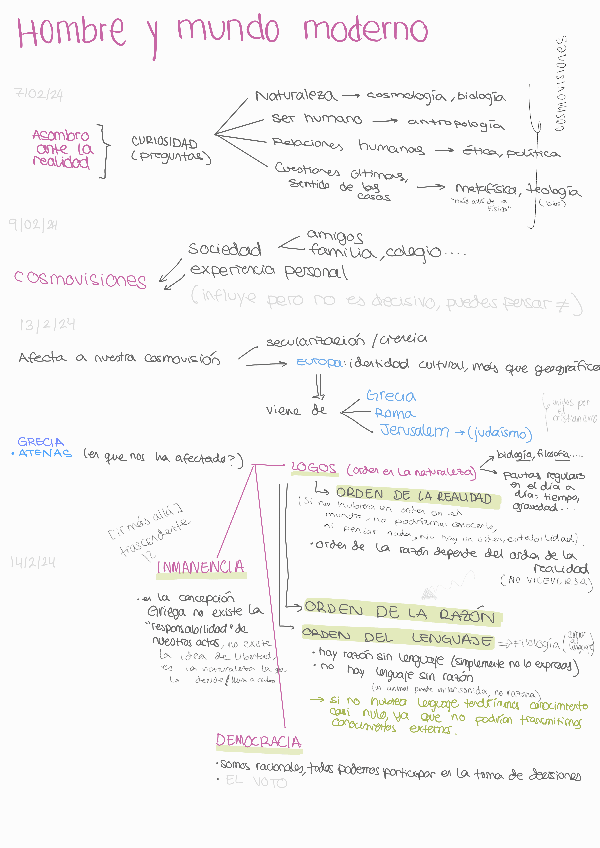 Hombre y mundo moderno
cosmovisiones
7/02/24
Naturaleza → cosmología, biología
ser humano → antropología
Asombro
ante la
realidad
CURIOSIDAD
(preguntas)
Relaciones humanas → ética, política
Cuestiones últimas,
sentido de las
cosas
→ metafísica, teología
"más allá de lo
físico"
9/02/24
sociedad
amigos
familia, colegio....
cosmovisiones
experiencia personal
(influye pero no es decisivo, puedes pensar ≠)
13/2/24
Afecta a nuestra cosmovisión
secularización / creencia
EUROPA: identidad cultural, más que geográfica
viene de
Grecia
Roma
Jerusalem → (judaísmo)
unidos por
cristianismo
GRECIA
• ATENAS (en que nos ha afectado?)
LOGOS (orden en la naturaleza)
biología, filosofía....
pautas regulares
en el día a
día: tiempo,
gravedad...
↳ ORDEN DE LA REALIDAD
(Si no hubiera un orden en el
mundo, no podríamos conocerlo,
ni pensar nada, no hay un orden, inteligibilidad).
• orden de la razón depende del orden de la
realidad
(NO VICEVERSA)
[ir más allá]
trascendente
14/2/24
INMANENCIA
• en la concepción
Griega no existe la
"responsabilidad" de
nuestros actos, no existe
la idea de libertad,
es la naturaleza la que
lo decide
→ ORDEN DE LA RAZÓN
ORDEN DEL LENGUAJE → Filología
• hay razón sin lenguaje (simplemente no lo expresas)
• no hay lenguaje sin razón
(un animal puede emitir sonido, no razona)
→ si no hubiera lenguaje tendríamos conocimiento
casi nulo, ya que no podrían transmitirnos
conocimientos externos.
DEMOCRACIA
• somos racionales, todos podemos participar en la toma de decisiones
• EL VOTO